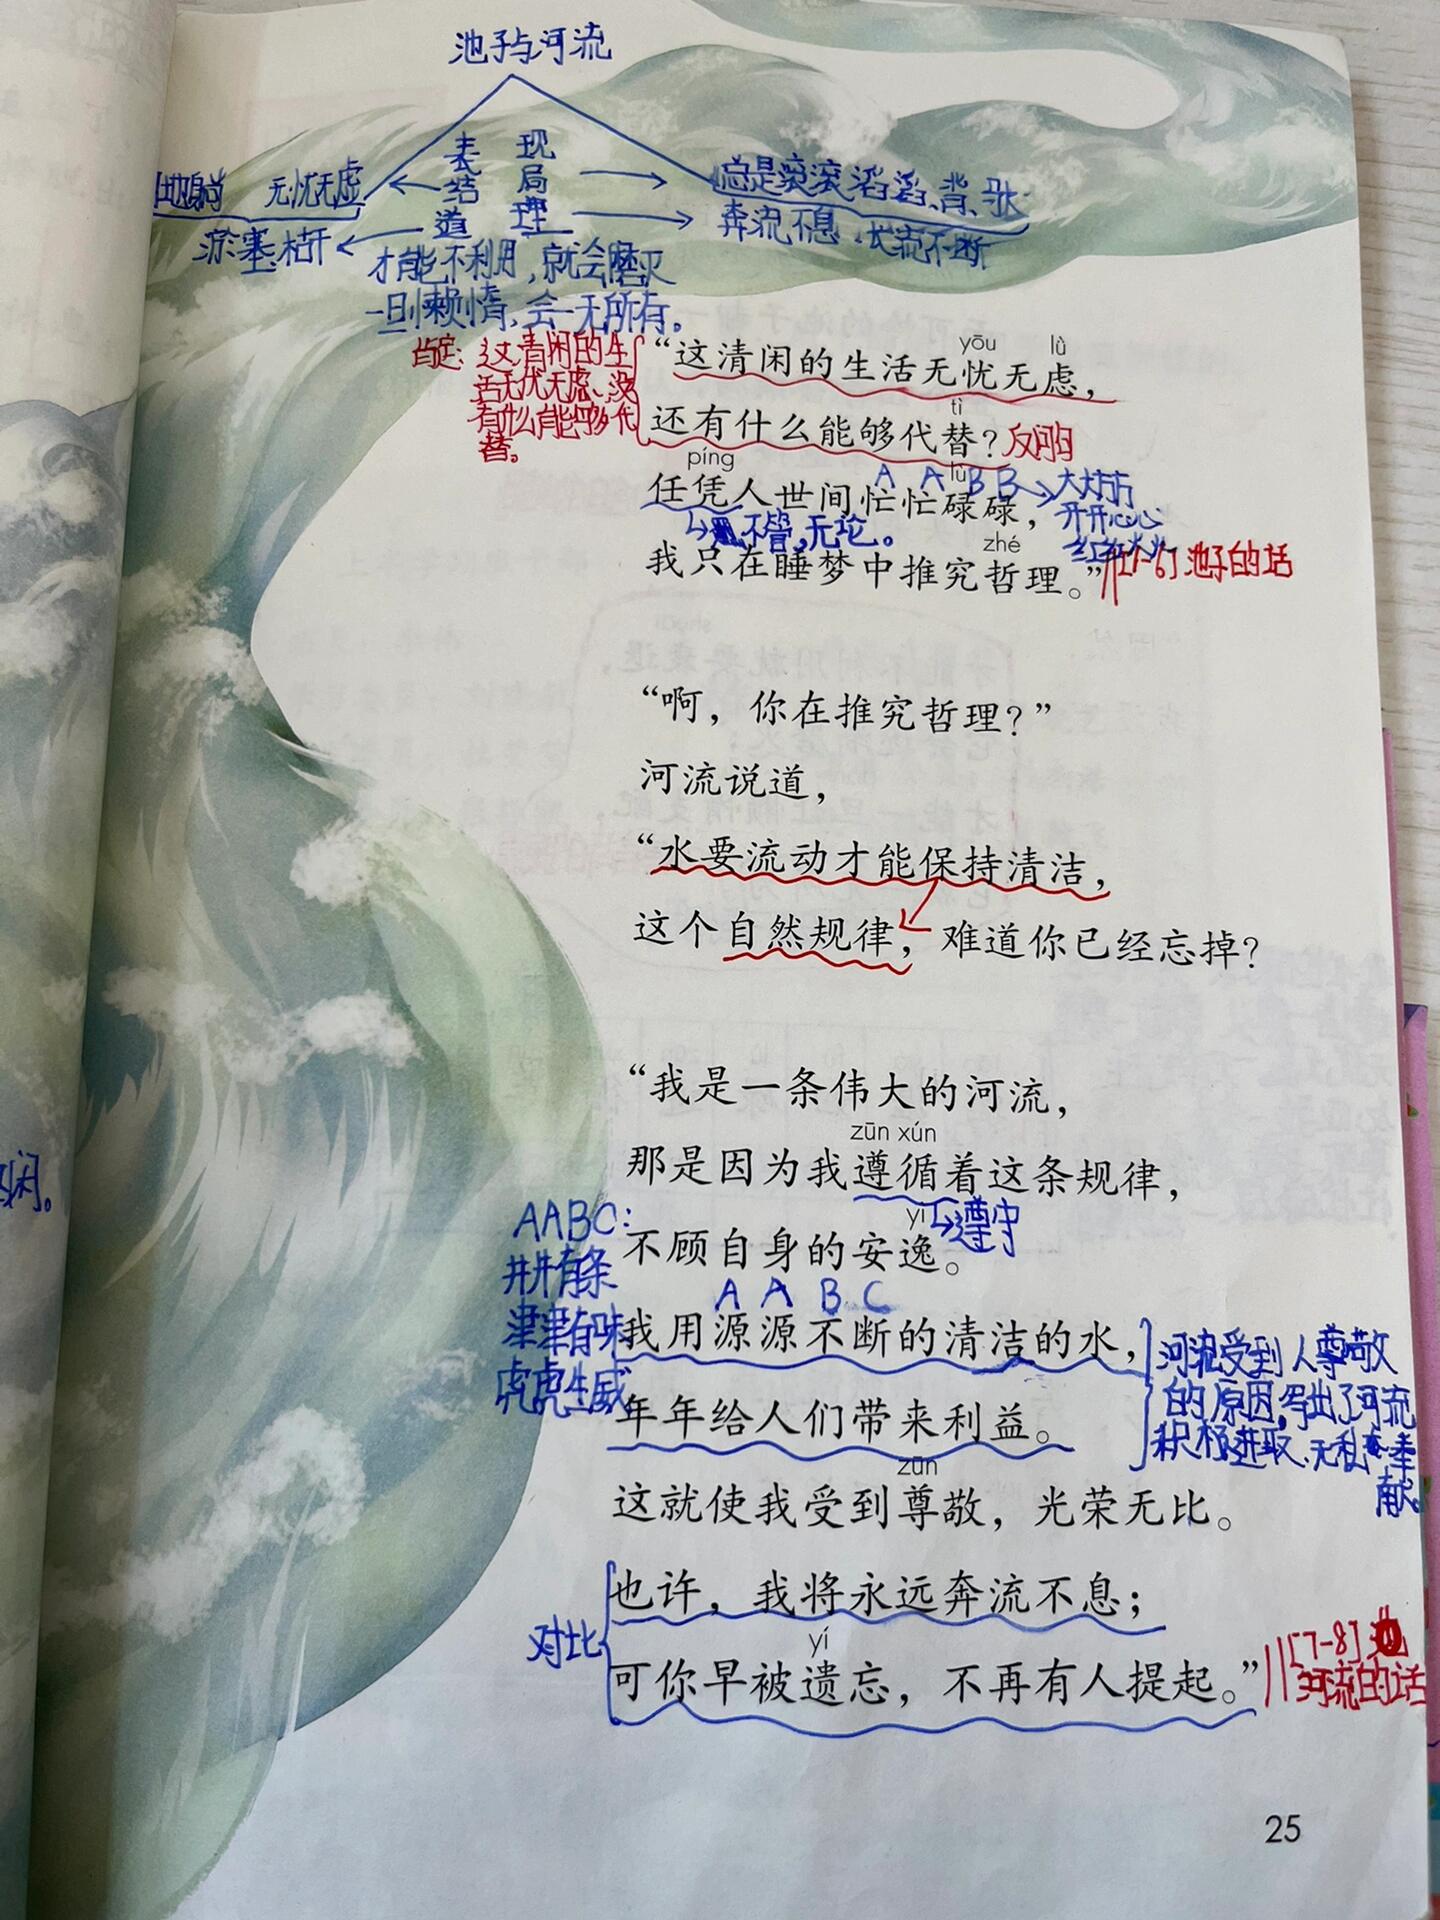 池子与河流
表 现
结 局
道 理
无忧无虑
淤塞.枯干
总是滚滚滔滔、背、
奔流不息、长流不断
才能不利用,就会磨灭
一旦懒惰,会一无所有。
yōu lǜ
“这清闲的生活无忧无虑,
肯定:这清闲的生
活无忧无虑、没
有什么能够代
替。
tì
还有什么能够代替?
反问句
píng lù
A A B B
任凭人世间忙忙碌碌,
大大方方
开开心心
红红火火
不管,无论。
zhé
我只在睡梦中推究哲理。”
池子的话
“啊,你在推究哲理?”
河流说道,
“水要流动才能保持清洁,
这个自然规律,难道你已经忘掉?
闲。
“我是一条伟大的河流,
zūn xún
那是因为我遵循着这条规律,
遵守
yì
不顾自身的安逸。
AABC:
井井有条
津津有味
虎虎生威
A A B C
我用源源不断的清洁的水,
年年给人们带来利益。
河流受到人尊敬
的原因,写出了河流
积极进取.无私奉
献。
zūn
这就使我受到尊敬,光荣无比。
对比
也许,我将永远奔流不息;
yí
可你早被遗忘,不再有人提起。”
[7-8]
河流的话
25